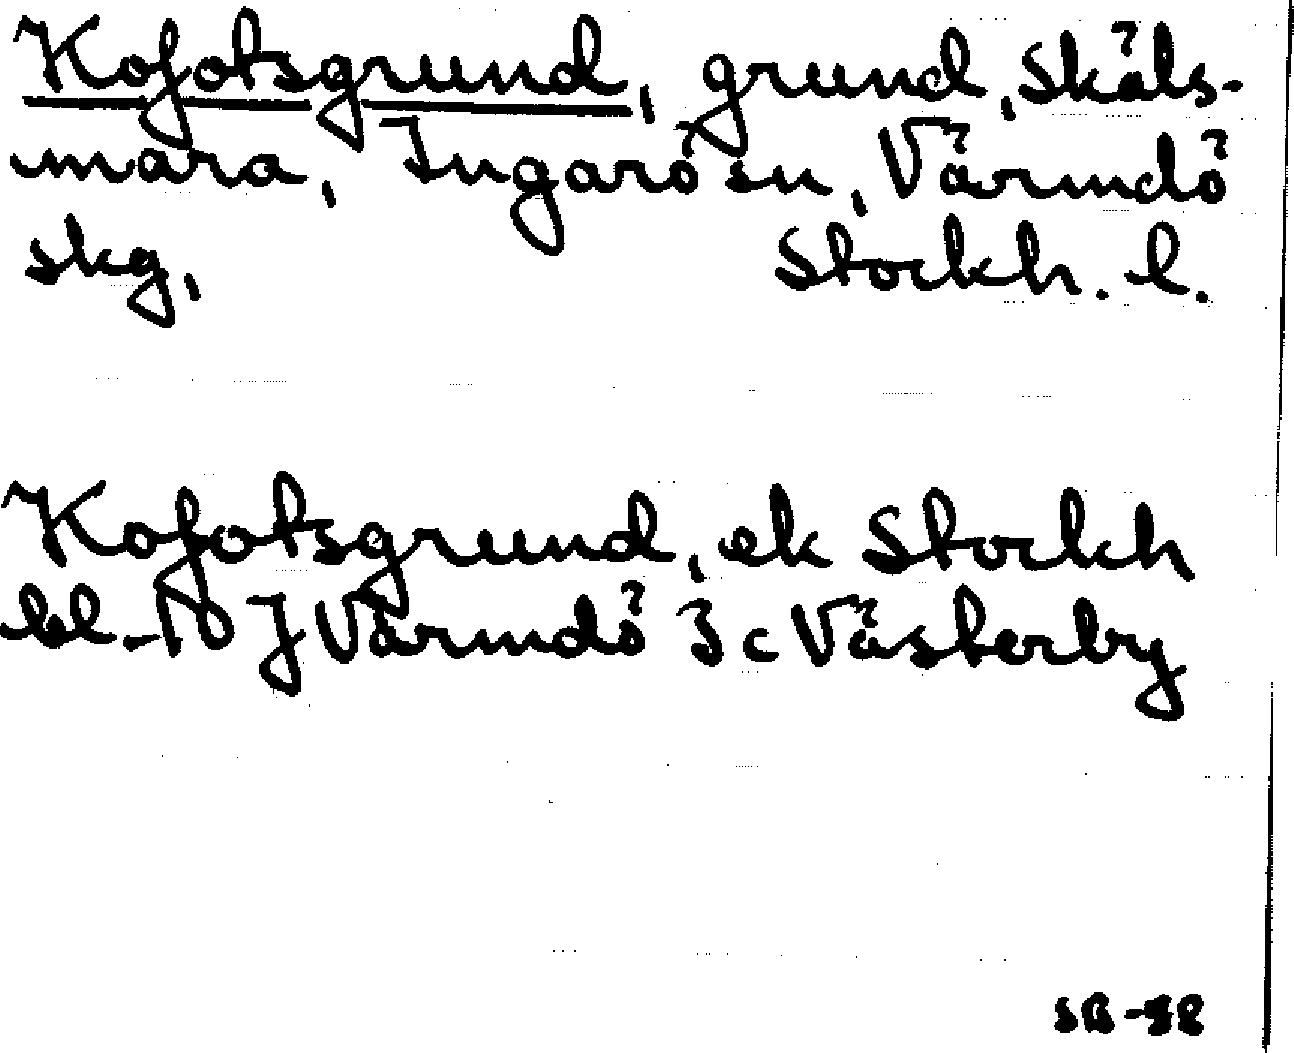 Kofotsgrund, grund, Skäls-
mara, Ingarö sn, Värmdö
skg, Stockh. l.
Kofotsgrund, ek Stockh
bl. 10 J Värmdö 3 c Västerby